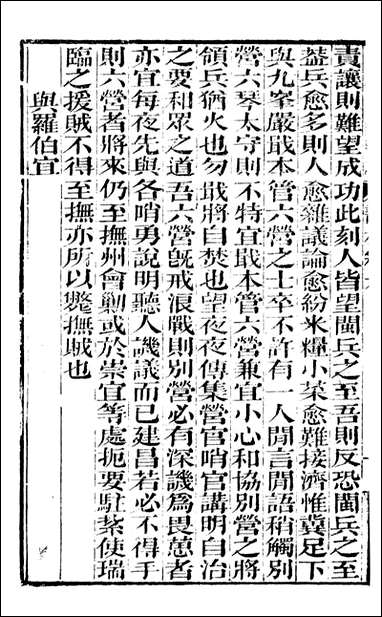 責讓則難望成功此刻人皆望閩兵之至吾則反恐閩兵之至
益兵愈多則人愈雜議論愈紛米糧小菜愈難接濟惟冀足下
與九峯嚴戢本管六營之士卒不許有一人閒言閒語稍觸別
營六琴太守則不特宜戢本管六營兼宜小心和協別營之將
領兵猶火也勿戢將自焚也望夜夜傳集營官哨官講明自治
之要和眾之道吾六營旣戒浪戰則別營必有深譏爲畏葸者
亦宜每夜先與各哨勇說明聽人譏議而已建昌若必不得手
則六營者將來仍至撫州會勦或於崇宜等處扼要駐紮使瑞
臨之援賊不得至撫亦所以斃撫賊也
與羅伯宜